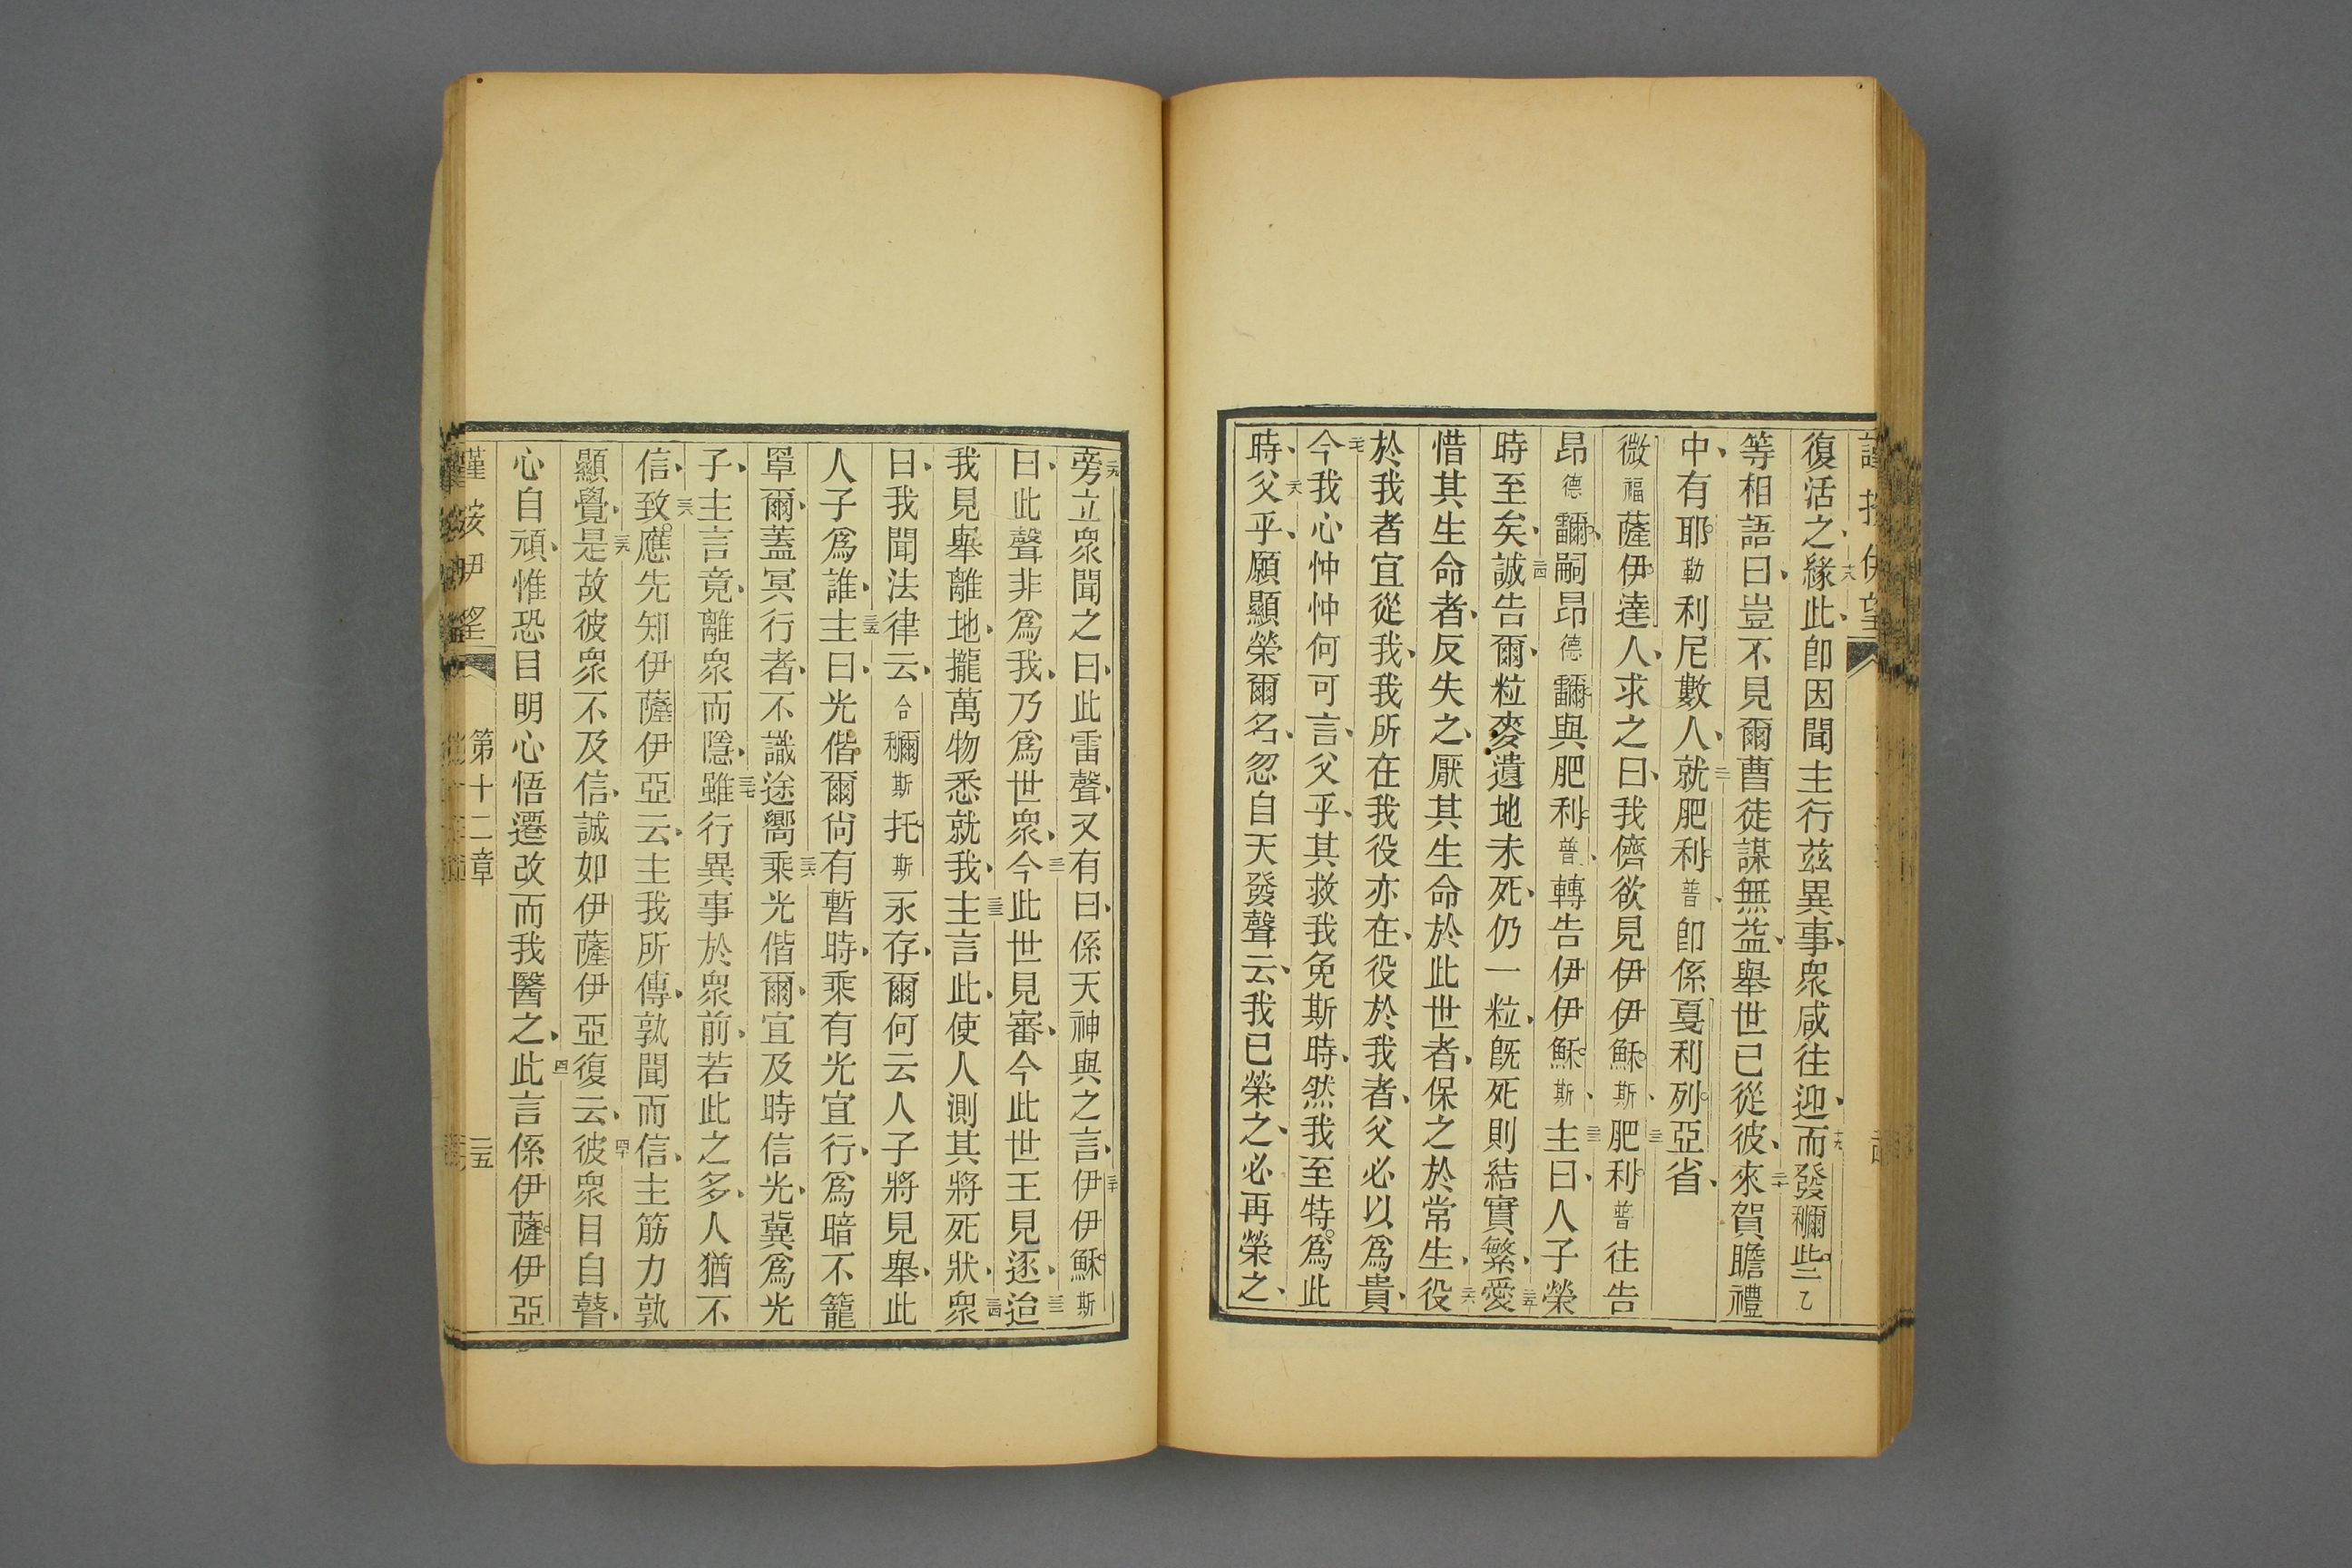 復活之、緣此、十八卽因聞主行茲異事、衆咸往迎、十九而發穪些乙
等相語曰、豈不見爾曹徒謀無益、舉世已從彼、二十來賀瞻禮
中、有耶勒利尼數人、二一就肥利普、卽係戞利列亞省、
微福薩伊達人、求之曰、我儕欲見伊伊穌斯、二二肥利普往告
昂德䨲、嗣昂德䨲與肥利普、轉告伊伊穌斯、二三主曰、人子榮
時至矣、二四誠告爾、粒麥遺地未死、仍一粒、旣死則結實繁、二五愛
惜其生命者、反失之、厭其生命於此世者、保之於常生、二六役
於我者宜從我、我所在我役亦在、役於我者、父必以爲貴、
二七今我心忡忡何可言、父乎、其救我免斯時、然我至特爲此
時、二八父乎、願顯榮爾名、忽自天發聲云、我已榮之、必再榮之、
二九旁立衆聞之曰、此雷聲、又有曰、係天神與之言、三十伊伊穌斯
曰、此聲非爲我、乃爲世衆、三一今此世見審、今此世王見逐、三二迨
我見舉離地、攏萬物悉就我、三三主言此、使人測其將死狀、三四衆
曰、我聞法律云、合穪斯托斯永存、爾何云人子將見舉、此
人子爲誰、三五主曰、光偕爾尙有暫時、乘有光宜行、爲暗不籠
罩爾、蓋冥行者、不識途嚮、三六乘光偕爾、宜及時信光、冀爲光
子、主言竟、離衆而隱、三七雖行異事於衆前、若此之多、人猶不
信、三八致應先知伊薩伊亞云、主我所傳、孰聞而信、主筋力孰
顯覺、三九是故彼衆不及信、誠如伊薩伊亞復云、四十彼衆目自瞽、
心自頑、惟恐目明心悟遷改而我醫之、四一此言係伊薩伊亞
謹按伊望 第十二章 二五